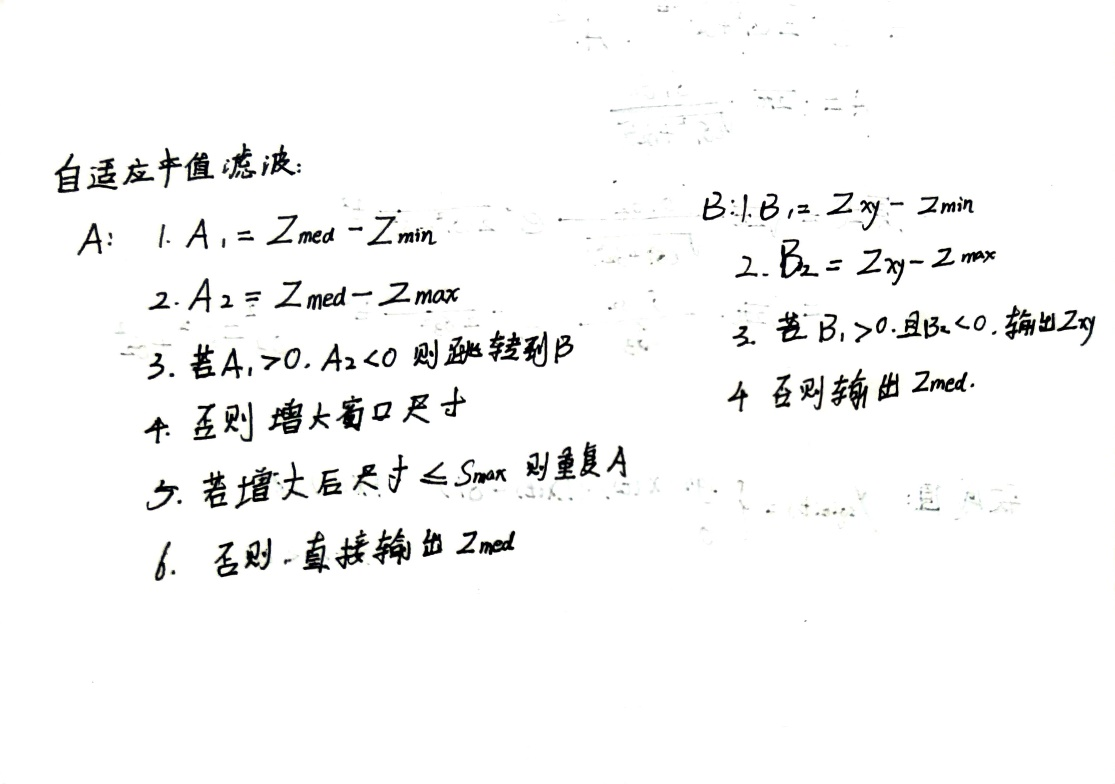 自适应中值滤波:
A: 1. A₁ = Zmed - Zmin
2. A₂ = Zmed - Zmax
3. 若A₁>0. A₂<0 则跳转到B
4. 否则增大窗口尺寸
5. 若增大后尺寸 ≤ Smax 则重复A
6. 否则.直接输出 Zmed
B: 1. B₁ = Zxy - Zmin
2. B₂ = Zxy - Zmax
3. 若 B₁>0.且B₂<0.输出Zxy
4 否则输出 Zmed.